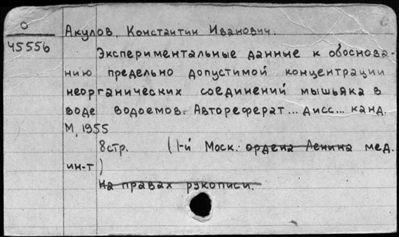 О
45556
Акулов, Константин Иванович.
Экспериментальные данные к обоснова-
нию предельно допустимой концентрации
неорганических соединений мышьяка в
воде водоемов. Автореферат... дисс... канд.
М, 1955
8стр. (1-й Моск. ордена Ленина мед.
ин-т)
На правах рукописи.